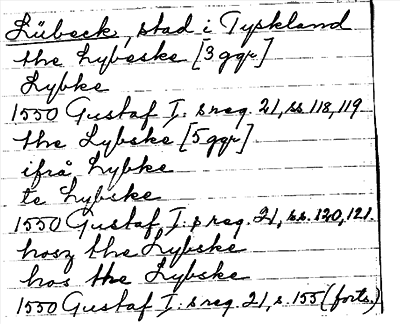 Lübeck, stad i Tyskland
the Lybeske [3 ggr]
Lybke
1550 Gustaf I: s reg. 21, ss. 118, 119
the Lybske [5 ggr]
ifrå Lybke
te Lybske
1550 Gustaf I: s reg. 21, ss. 120, 121.
hosz the Lybske
hos the Lybske
1550 Gustaf I: s reg. 21, s. 155 (forts.)